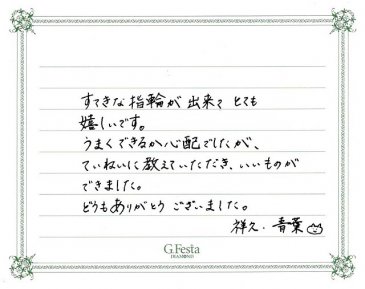 すてきな指輪が出来て とても
嬉しいです。
うまくできるか心配でしたが、
ていねいに教えていただき、いいものが
できました。
どうもありがとう ございました。
祥久・青葉
G.Festa
DIAMOND